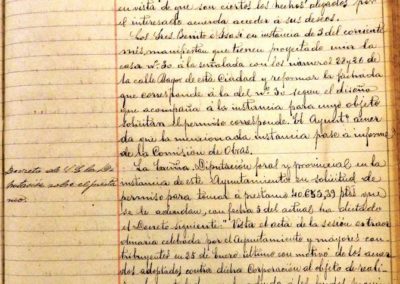 en vista de que son ciertos los hechos alegados por
el interesado acuerda acceder á sus deseos.
Los Sres. Benito é Isaac en instancia de 3 del corriente
mes, manifiestan que tienen proyectado unir la
casa nº 30 á la señalada con los numeros 28 y 26 de
la calle Mayor de esta Ciudad y reformar la fachada
que corresponde á la del nº 30 segun el diseño
que acompaña á la instancia para cuyo objeto
solicitan el permiso corresponde. El Ayuntº acuer
da que la mencionada instancia pase a informe
de la Comision de Obras.
Decreto de
sobre el
La Excma. Diputacion foral y provincial en la
instancia de este Ayuntamiento en solicitud de
permiso para tomar á prestamo 40.655,39 ptas que
se le adeudan, con fecha 3 del actual ha dictado
el Decreto siguiente: "Vista el acta de la sesion extraor
dinaria celebrada por el Ayuntamiento y mayores con
tribuyentes en 25 de Enero último con motivo de los acuer
dos adoptados contra dicha Corporacion al objeto de reali